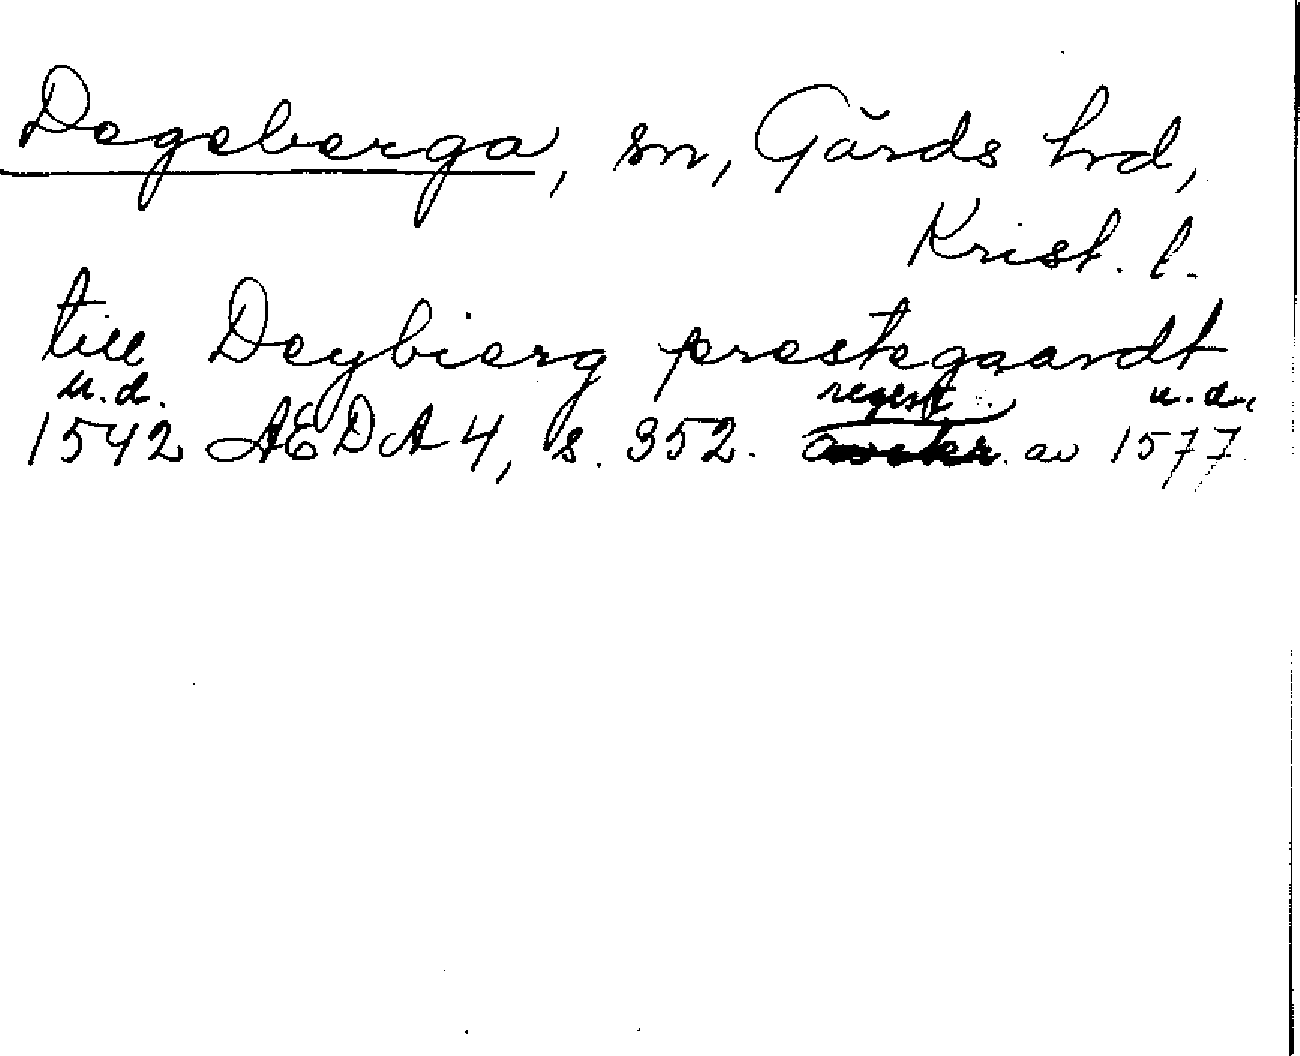 Degeberga, sn, Gärds hrd,
Krist. l.
till Deybierg prestegaardt
u.d. regest u.d.
1542 AEDA 4, s. 352. av 1577